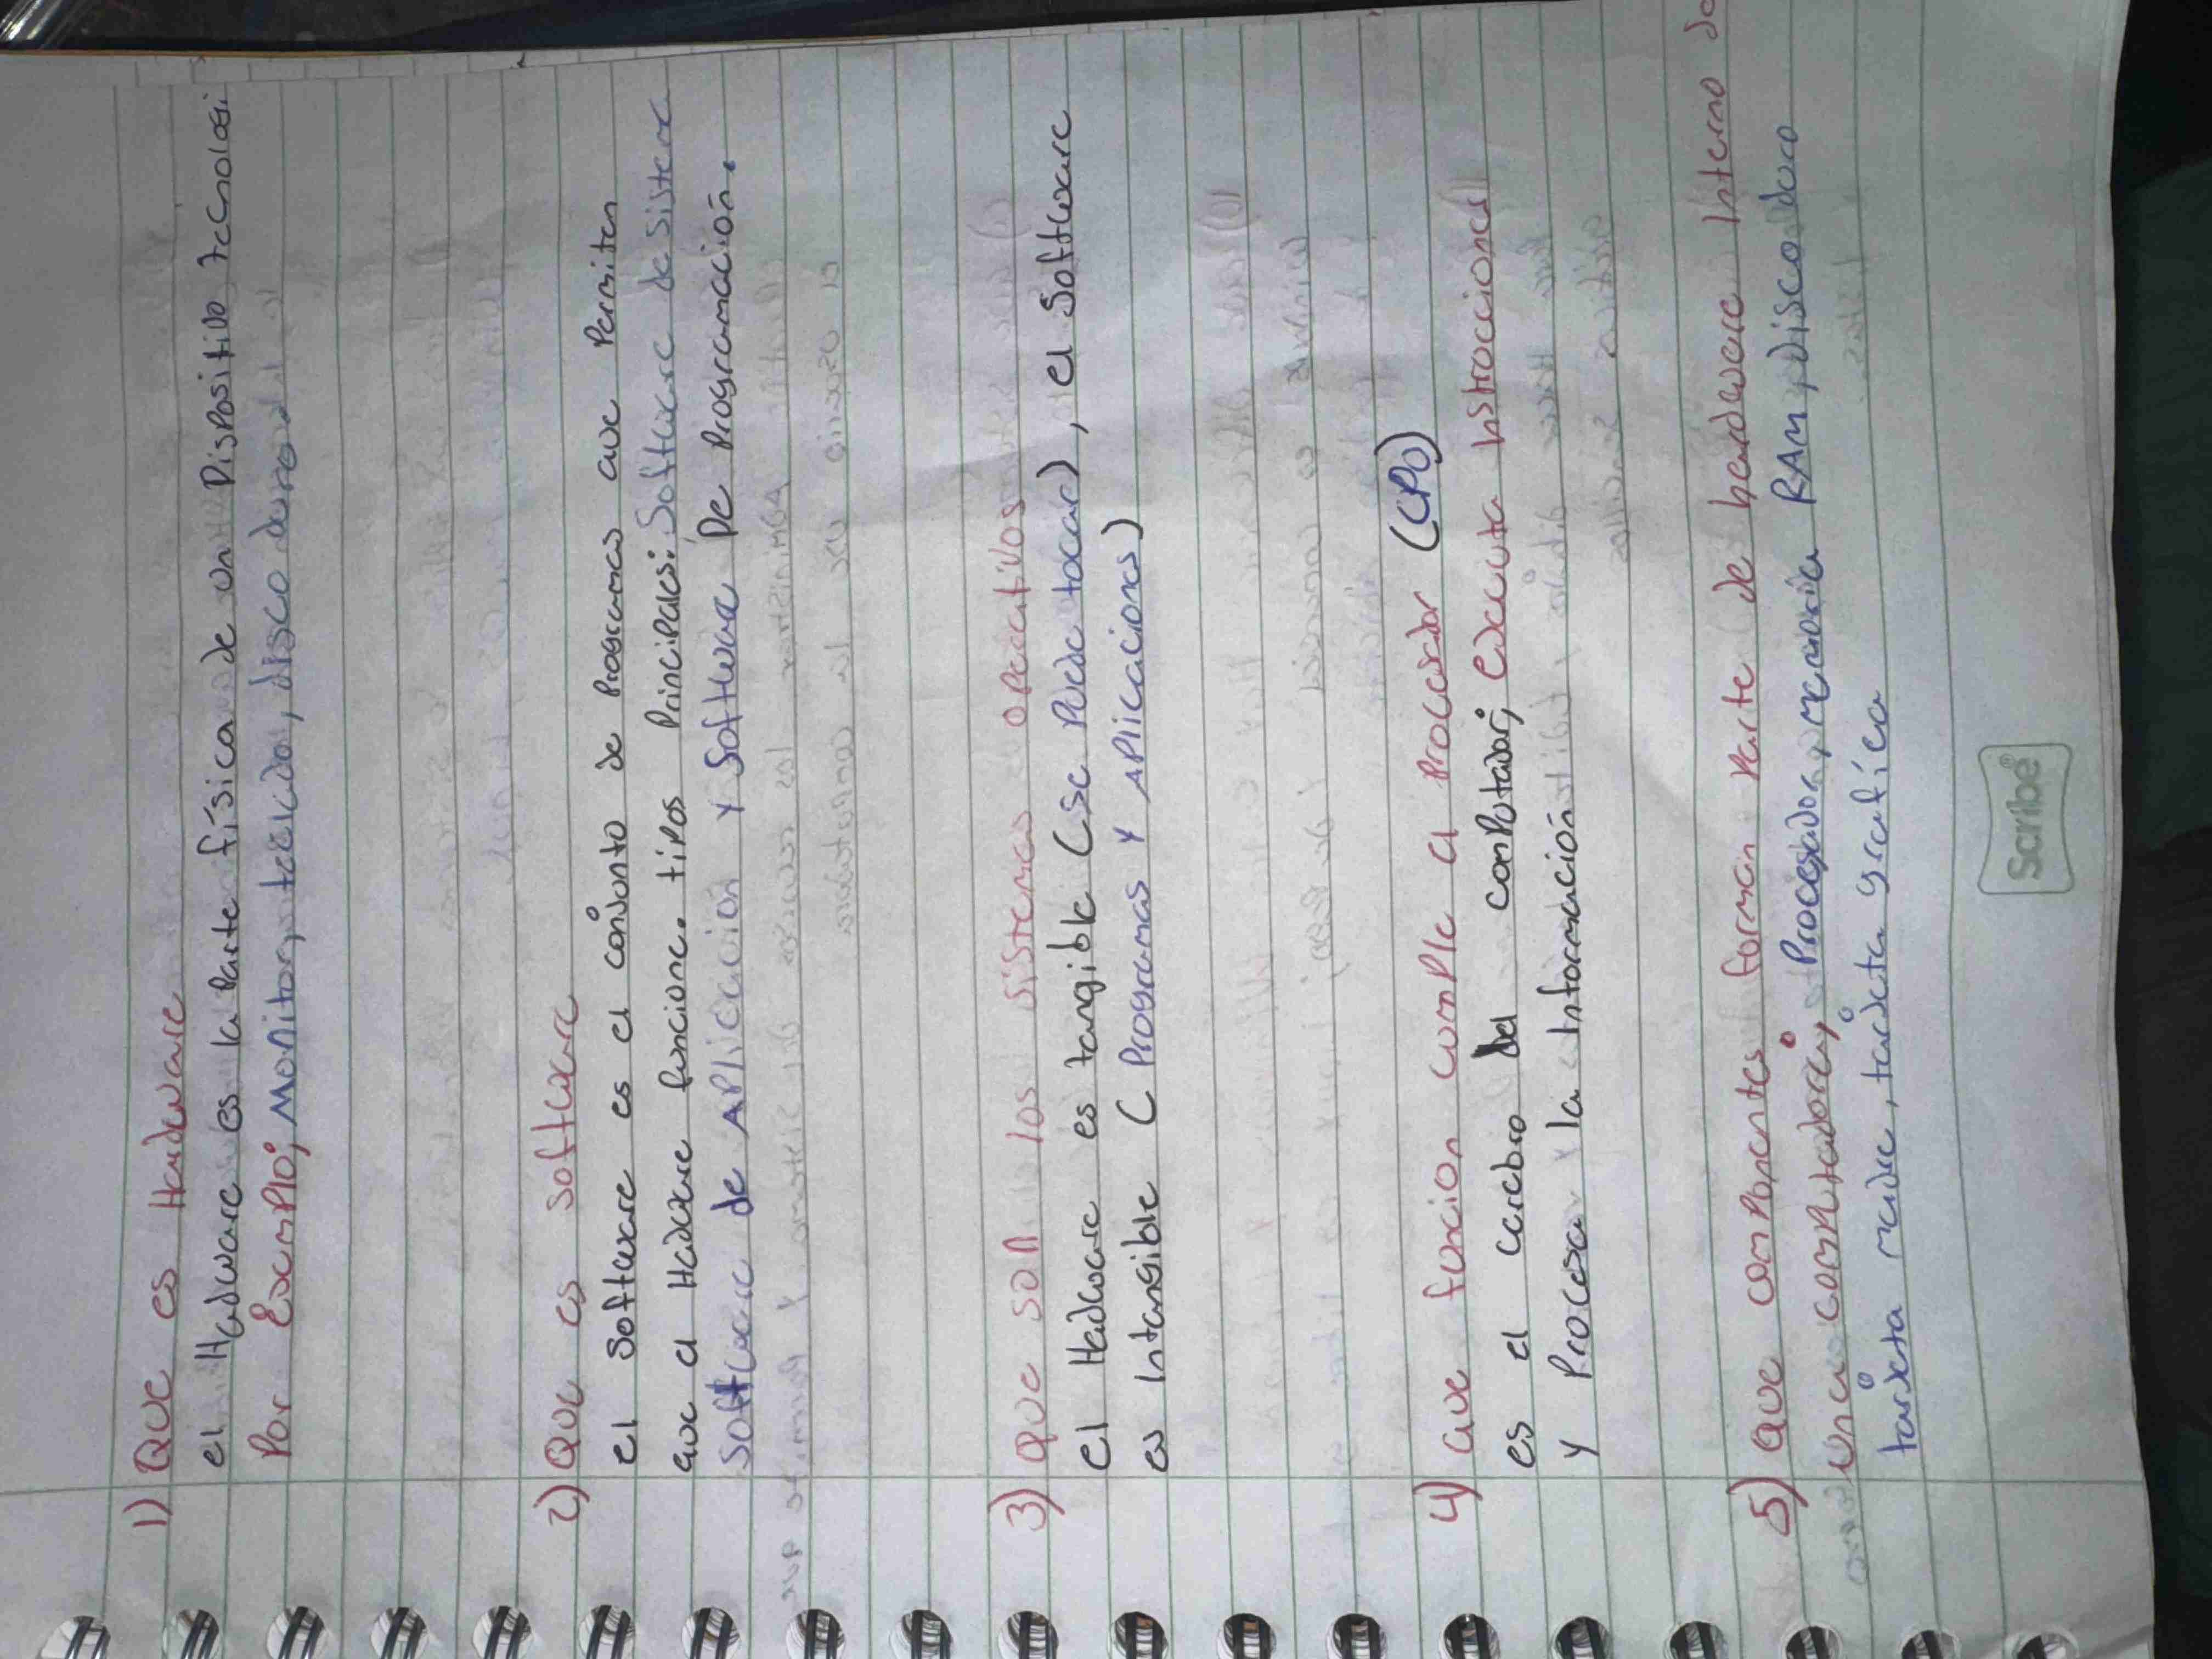 1) Que es Hardware
el Hadware es la parte física de un Dispositivo tecnologi
Por Exemplo; Monitor, teclado, disco duro
2) Que es software
el software es el conjunto de programas que permiten
que el Hadware funcione. tipos Principales: Software de sistema
software de APlicación y software De Programación.
3) que son los sistemas operativos
el Hadware es tangible (se Puede tocar), el software
es Intangible (Programas y APlicaciones)
4) que funcion cumple el Procesador (CPU)
es el cerebro del computador; Ejecuta Instrucciones
y Procesa la Información
5) que componentes forman parte de hardware Interno de
una computadora; Procesador, memoria RAM, Disco duro
tarjeta madre, tarjeta grafíca
Scribe®